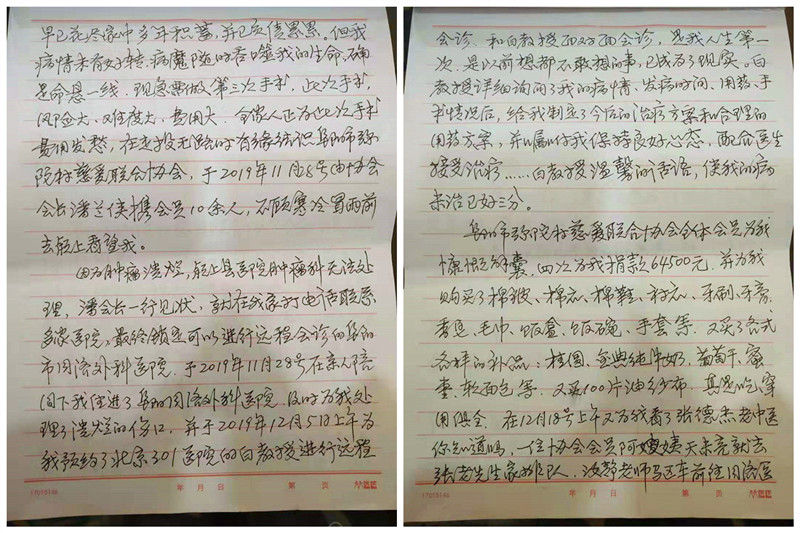 早已花尽家中多年积蓄，并已负债累累。但我
病情未有好转，病魔随时吞噬我的生命，确
是命悬一线，现急需做第三次手术，此次手术
风险大、难度大、费用大，全家人正为此次手术
费用发愁，在走投无路时有缘结识阜阳市弥
陀村慈爱联合协会，于2019年11月28号由协会
会长潘兰侠携会员10余人，不顾寒冷冒雨前
去颍上看望我。
因为肿瘤溃烂，颍上县医院肿瘤科无法处
理，潘会长一行见状，就在我家打电话联系
多家医院，最终锁定可以进行远程会诊的阜阳
市同济外科医院，于2019年11月28号在亲人陪
同下我住进了阜阳同济外科医院，及时为我处
理了溃烂的伤口，并于2019年12月5日上午为
我预约了北京301医院的白教授进行远程
17015146
年 月 日 第 页
会诊，和白教授面对面会诊，是我人生第一
次，是以前想都不敢想的事，已成为了现实。白
教授详细询问了我的病情、发病时间、用药、手
术情况后，给我制定了今后的治疗方案和合理的
用药方案，并嘱咐我保持良好心态，配合医生
接受治疗……白教授温馨的话语，使我的病
未治已好三分。
阜阳市弥陀村慈爱联合协会全体会员为我
慷慨解囊，四次为我捐款64500元，并为我
购买了棉被、棉衣、棉鞋、衬衣、牙刷、牙膏、
香皂、毛巾、饭盒、饭碗、手套等，又买了各式
各样的补品：桂圆、金典纯牛奶、葡萄干、蜜
枣、软面包等，又买100片油纱布，真是吃穿
用俱全，在12月18号上午又为我看了张德杰老中医
你知道吗，一位协会会员阿嫂姨天未亮就去
张老先生家排队，汝静老师驱车前往同济医
17015146
年 月 日 第 页